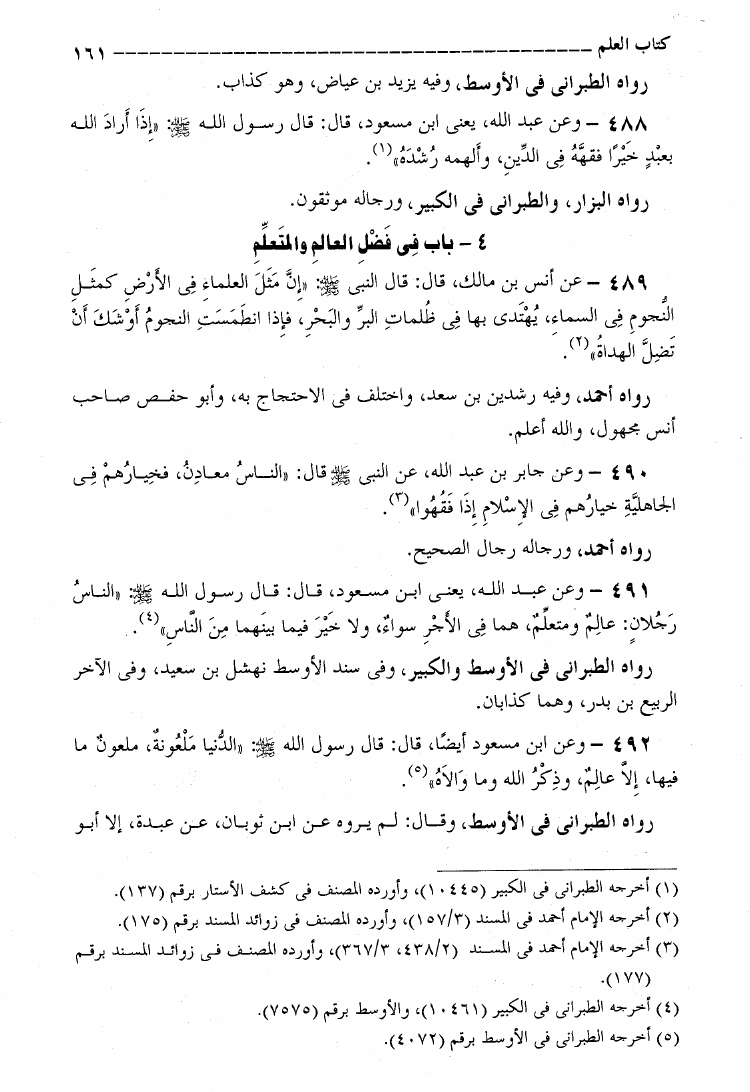 كتاب العلم ــــــــــــــــــــــــــــــــــــــــ ١٦١
رواه الطبرانى فى الأوسط، وفيه يزيد بن عياض، وهو كذاب.
٤٨٨ – وعن عبد الله، يعنى ابن مسعود، قال: قال رسول الله ﷺ: «إِذَا أَرَادَ الله
بعبْدٍ خَيْرًا فقهَّهُ فِى الدِّينِ، وألهمه رُشْدَهُ»(١).
رواه البزار، والطبرانى فى الكبير، ورجاله موثقون.
٤ – باب فِى فَضْلِ العالِمِ والمتَعلِّمِ
٤٨٩ – عن أنس بن مالك، قال: قال النبى ﷺ: «إِنَّ مَثَلَ العلماءِ فِى الأَرْضِ كمثَلِ
النُّجومِ فِى السماءِ، يُهْتَدى بها فِى ظُلماتِ البرِّ والبَحْرِ، فإذا انطمَسَتِ النجومُ أَوْشَكَ أَنْ
تَضِلَّ الهداةُ»(٢).
رواه أحمد، وفيه رشدين بن سعد، واختلف فى الاحتجاج به، وأبو حفص صاحب
أنس مجهول، والله أعلم.
٤٩٠ – وعن جابر بن عبد الله، عن النبى ﷺ قال: «الناسُ معادِنُ، فخيارُهمْ فِى
الجاهليَّةِ خيارُهم فِى الإِسْلامِ إِذَا فَقُهُوا»(٣).
رواه أحمد، ورجاله رجال الصحيح.
٤٩١ – وعن عبد الله، يعنى ابن مسعود، قال: قال رسول الله ﷺ: «الناسُ
رَجُلانِ: عالِمٌ ومتعلِّمٌ، هما فِى الأَجْرِ سواءٌ، ولا خَيْرَ فيما بينَهما مِنَ النَّاسِ»(٤).
رواه الطبرانى فى الأوسط والكبير، وفى سند الأوسط نهشل بن سعيد، وفى الآخر
الربيع بن بدر، وهما كذابان.
٤٩٢ – وعن ابن مسعود أيضًا، قال: قال رسول الله ﷺ: «الدُّنيا مَلْعُونةٌ، ملعونٌ ما
فيها، إِلاَّ عالِمٌ، وذِكْرُ الله وما وَالاَهُ»(٥).
رواه الطبرانى فى الأوسط، وقال: لم يروه عن ابن ثوبان، عن عبدة، إلا أبو
(١) أخرجه الطبرانى فى الكبير (١٠٤٤٥)، وأورده المصنف فى كشف الأستار برقم (١٣٧).
(٢) أخرجه الإمام أحمد فى المسند (١٥٧/٣)، وأورده المصنف فى زوائد المسند برقم (١٧٥).
(٣) أخرجه الإمام أحمد فى المسند (٤٣٨/٢، ٣٦٧/٣)، وأورده المصنف فى زوائد المسند برقم
(١٧٧).
(٤) أخرجه الطبرانى فى الكبير (١٠٤٦١)، والأوسط برقم (٧٥٧٥).
(٥) أخرجه الطبرانى فى الأوسط برقم (٤٠٧٢).